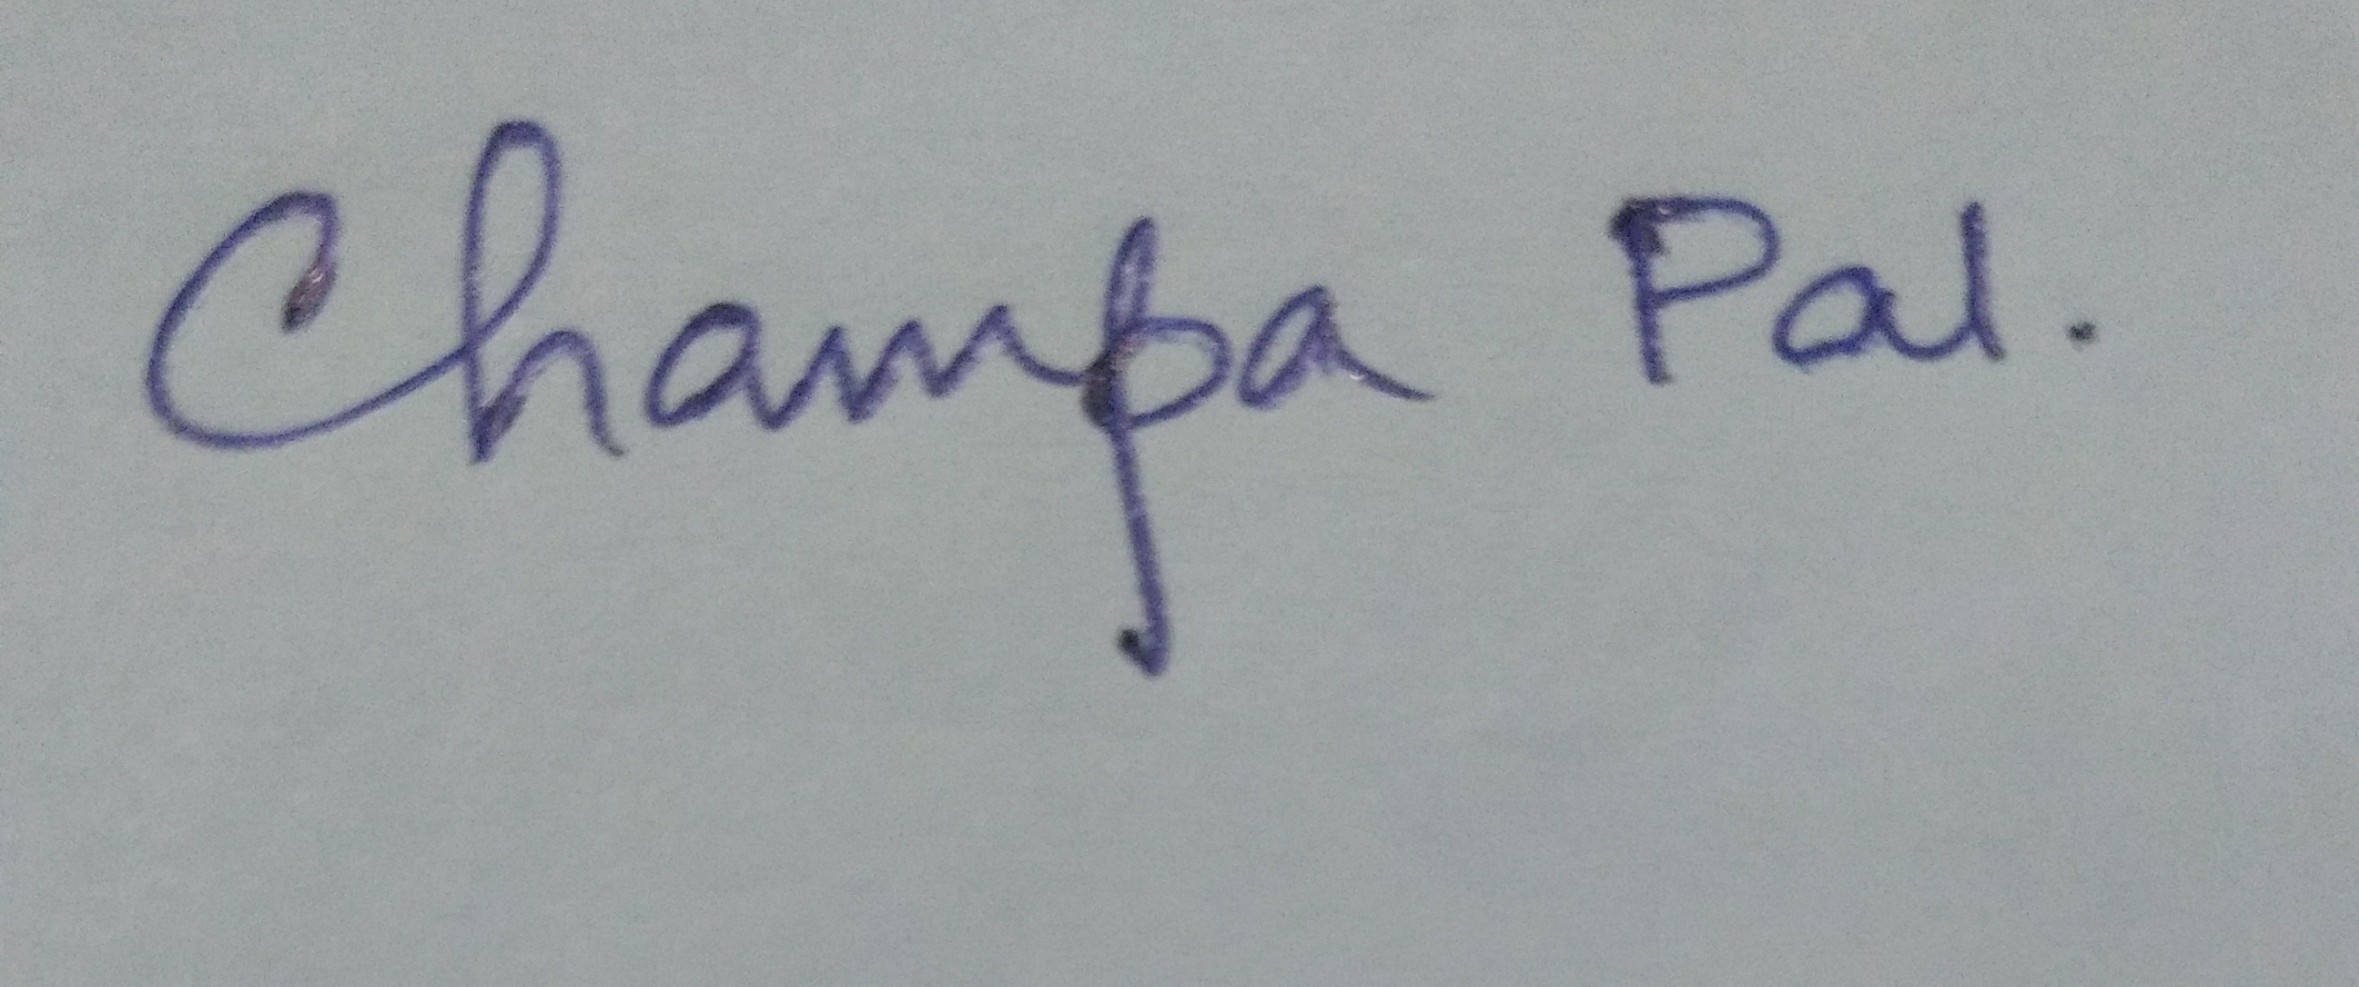 Champa Pal.